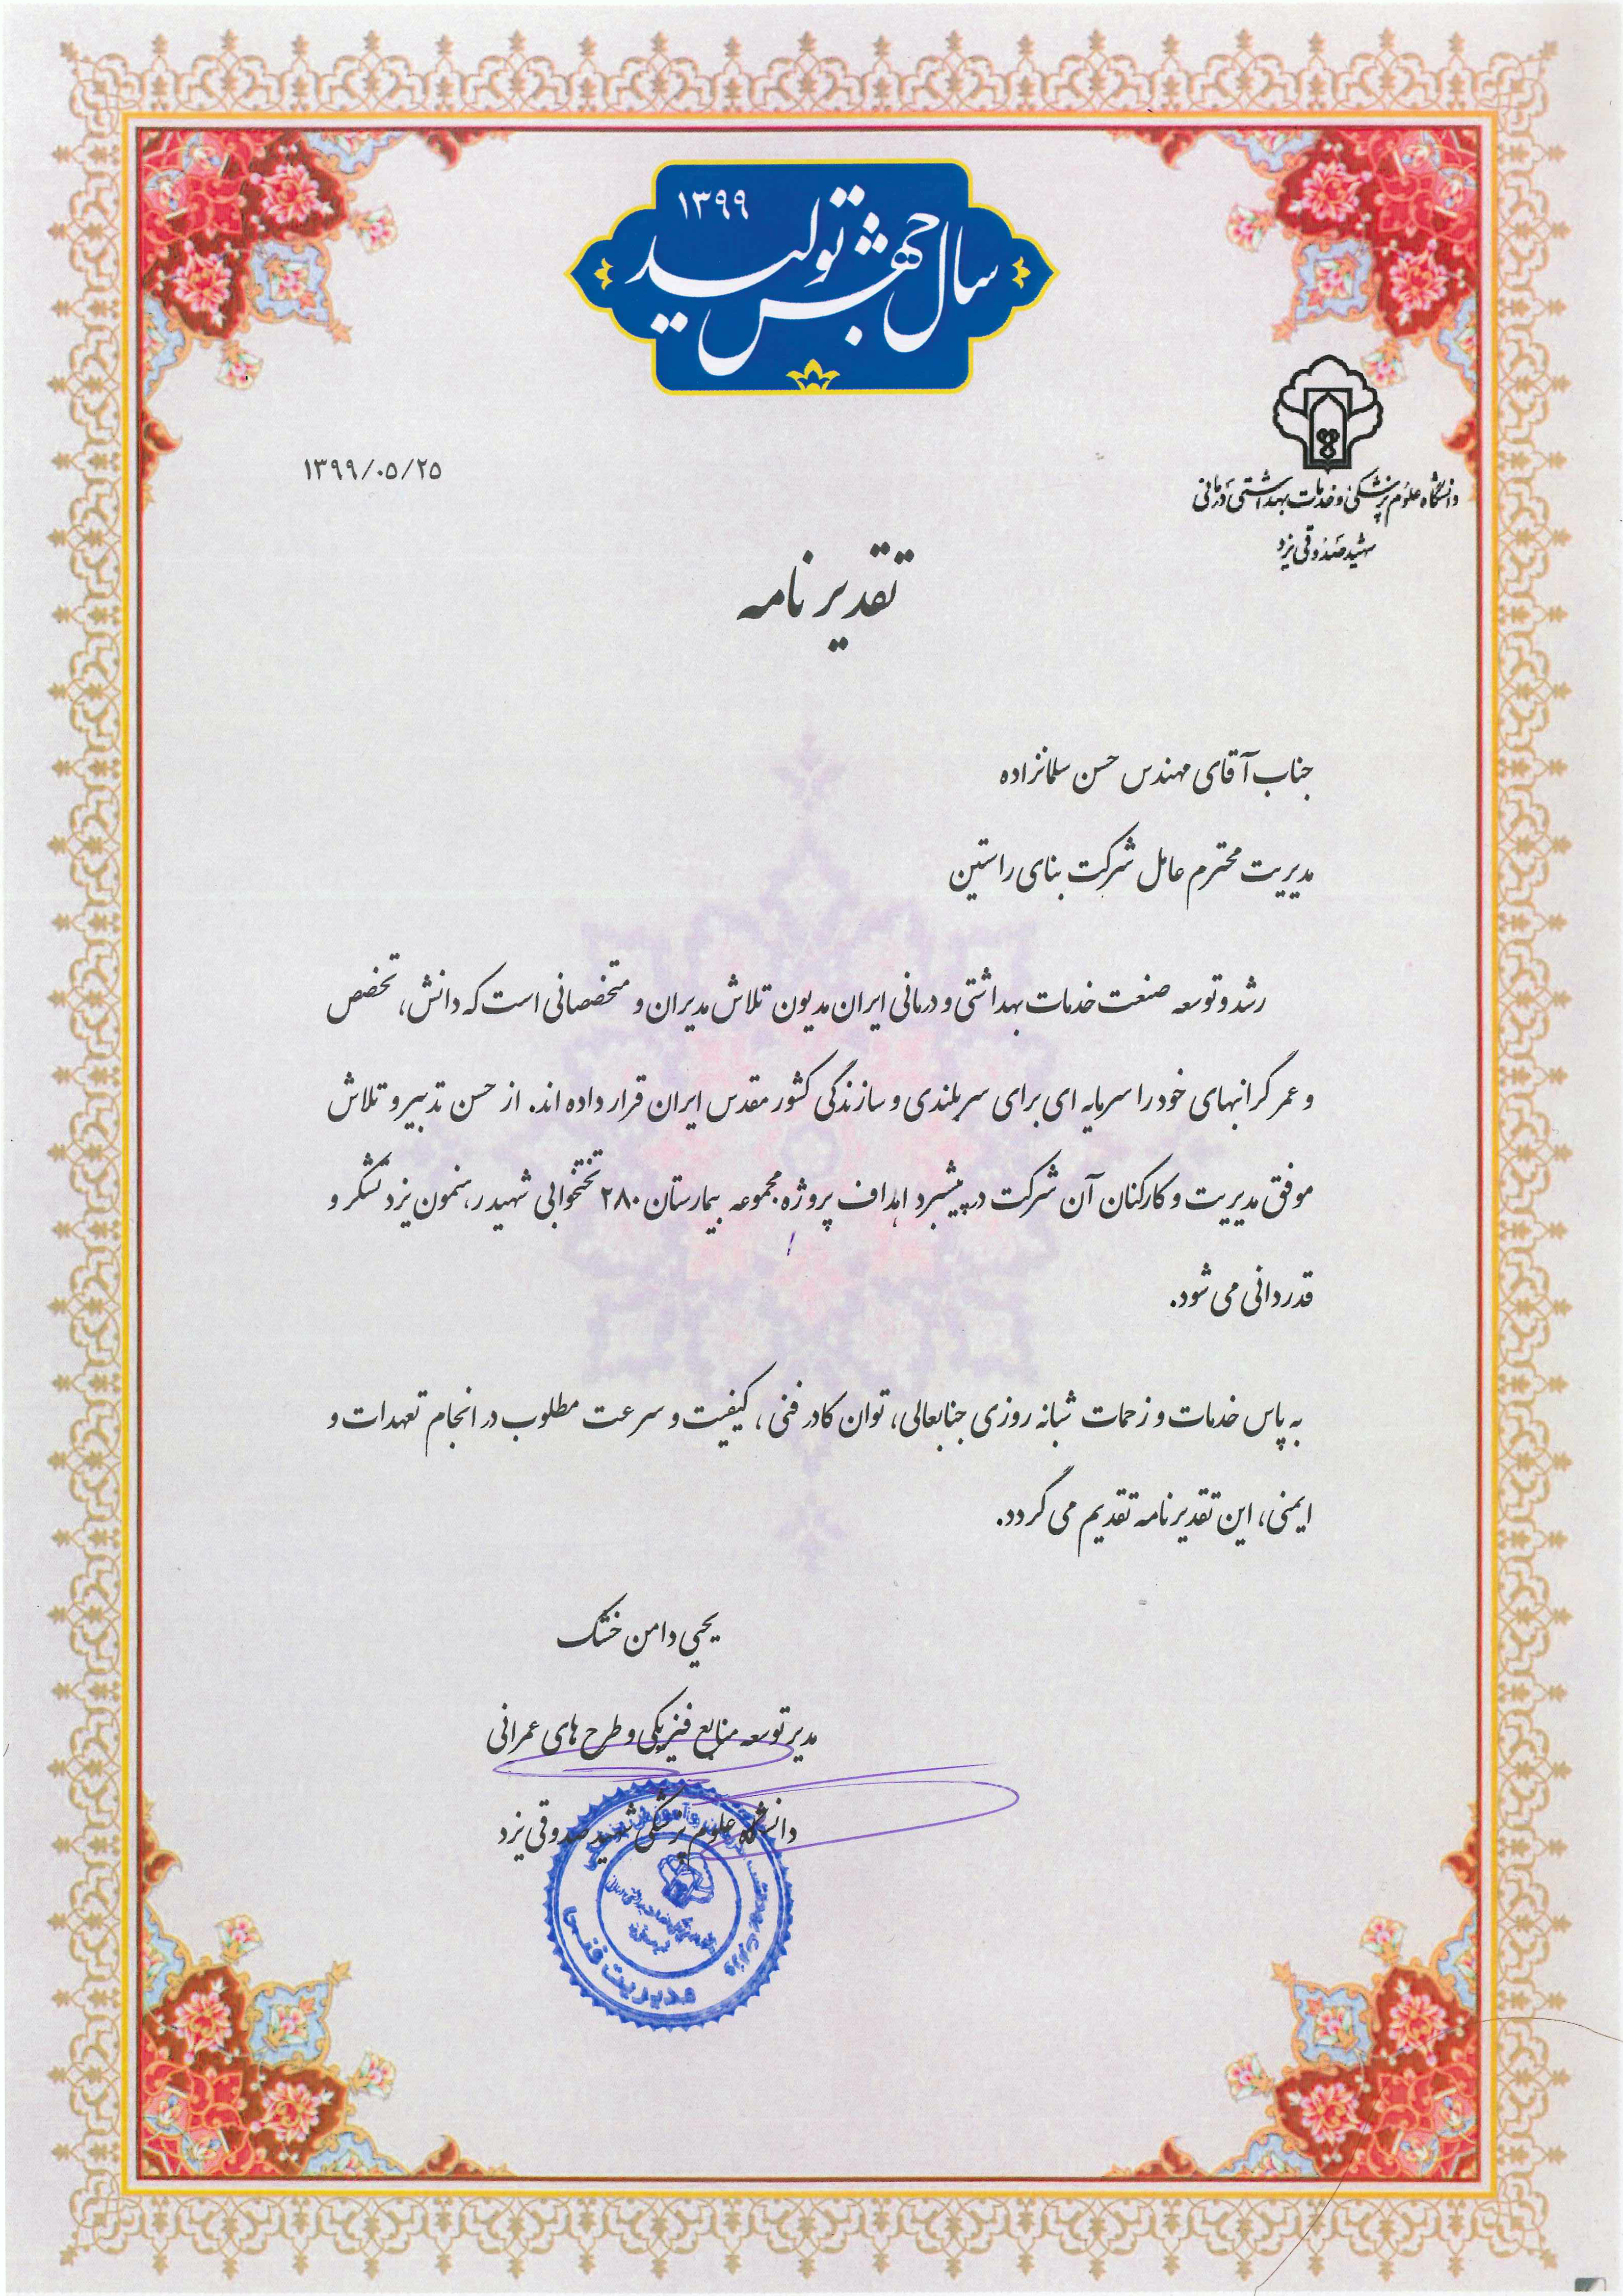 سال جهش تولید
۱۳۹۹
دانشگاه علوم پزشکی و خدمات بهداشتی درمانی
شهید صدوقی یزد
۱۳۹۹/۰۵/۲۵
تقدیر نامه
جناب آقای مهندس حسن سلمانزاده
مدیریت محترم عامل شرکت بنای راستین
رشد و توسعه صنعت خدمات بهداشتی و درمانی ایران مدیون تلاش مدیران و متخصصانی است که دانش، تخصص
و عمر گرانبهای خود را سرمایه ای برای سربلندی و سازندگی کشور مقدس ایران قرار داده اند. از حسن تدبیر و تلاش
موفق مدیریت و کارکنان آن شرکت در پیشبرد اهداف پروژه مجموعه بیمارستان ۲۸۰ تختخوابی شهید رهنمون یزد تشکر و
قدردانی می شود.
به پاس خدمات و زحمات شبانه روزی جنابعالی، توان کادر فنی، کیفیت و سرعت مطلوب در انجام تعهدات و
ایمنی، این تقدیرنامه تقدیم می گردد.
یحیی دامن خشک
مدیر توسعه منابع فیزیکی و طرح های عمرانی
دانشگاه علوم پزشکی شهید صدوقی یزد
مدیریت فنی